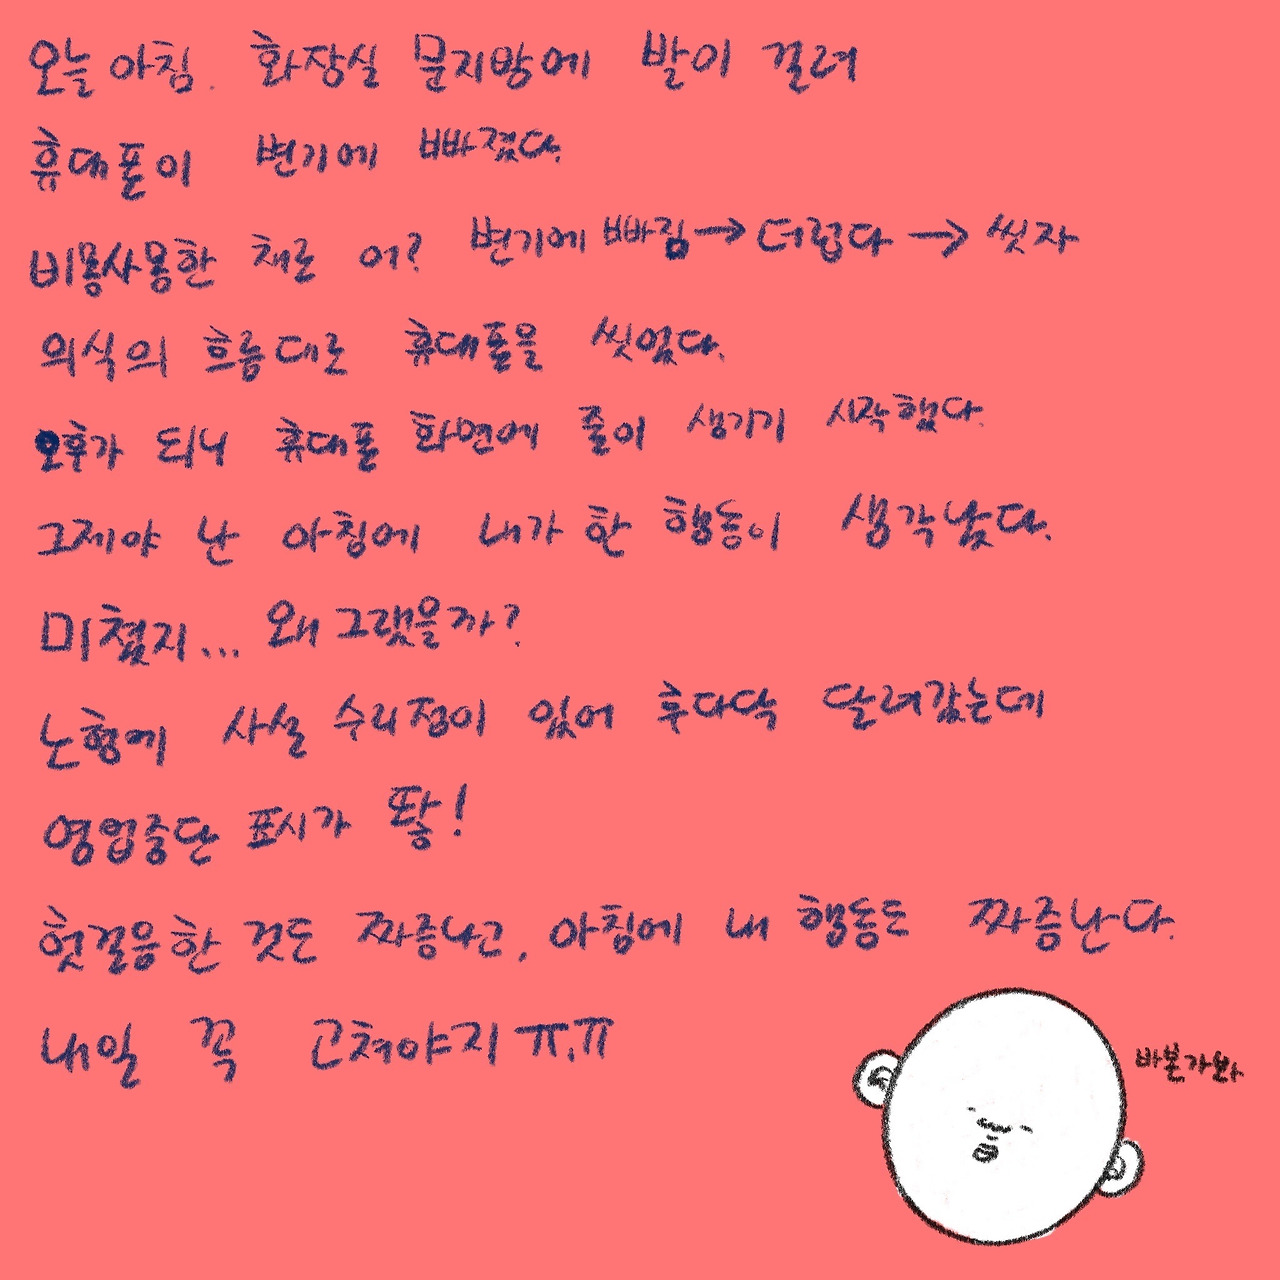 오늘 아침. 화장실 문지방에 발이 걸려
휴대폰이 변기에 빠졌다.
비몽사몽한 채로 어? 변기에 빠짐→더럽다→씻자
의식의 흐름대로 휴대폰을 씻었다.
오후가 되니 휴대폰 화면에 줄이 생기기 시작했다.
그제야 난 아침에 내가 한 행동이 생각났다.
미쳤지... 왜 그랬을까?
노형에 사설 수리점이 있어 후다닥 달려갔는데
영업중단 표시가 똻!
헛걸음한 것도 짜증나고, 아침에 내 행동도 짜증난다.
내일 꼭 고쳐야지 ㅠ.ㅠ
바본가봐